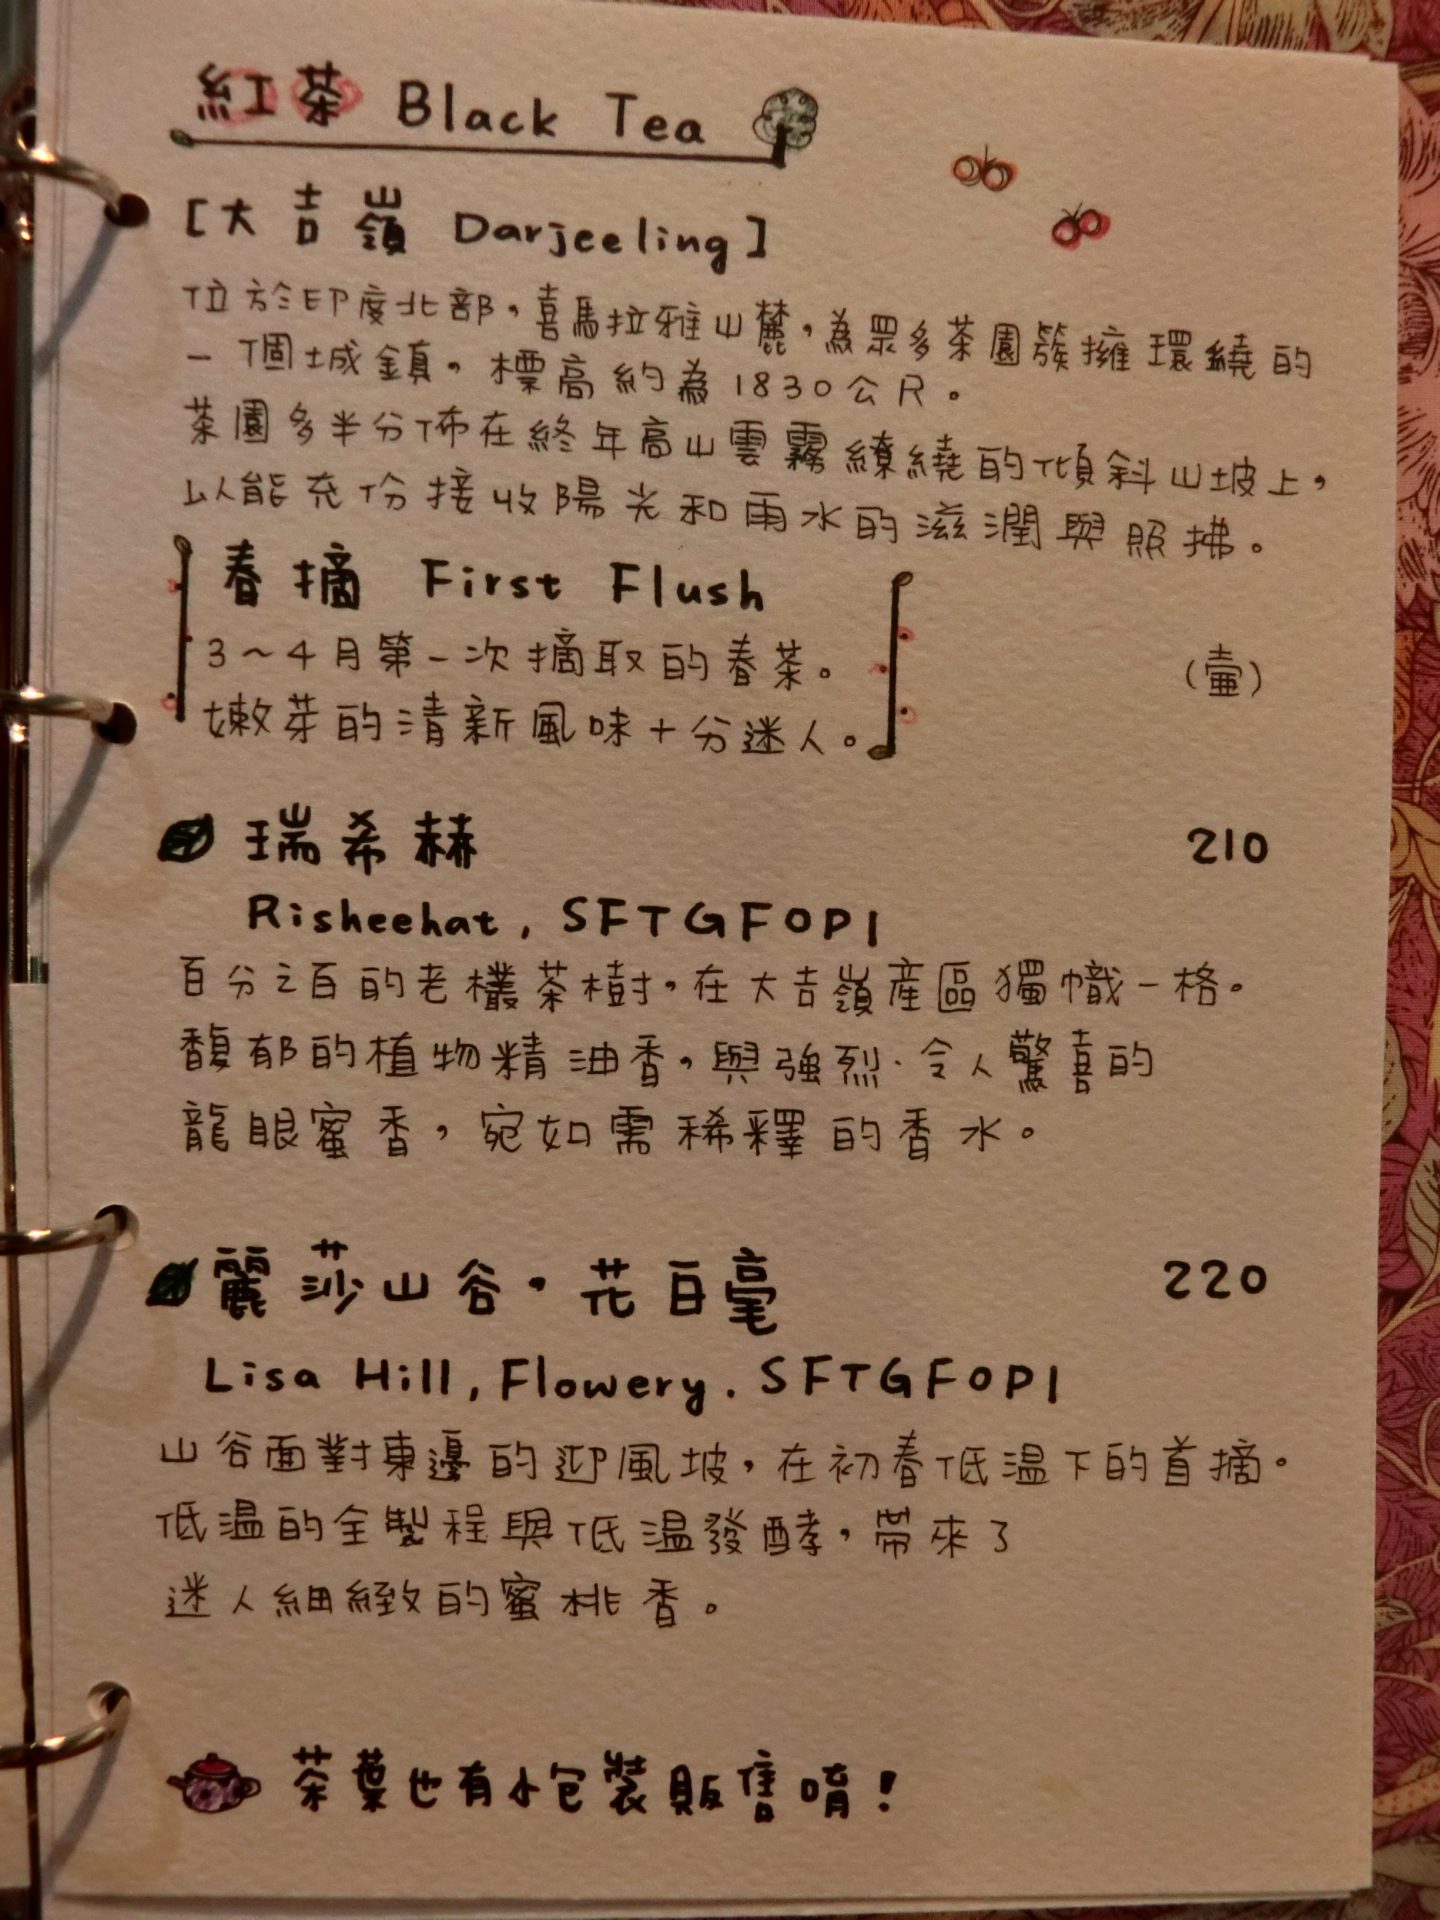 紅茶 Black Tea
[大吉嶺 Darjeeling]
位於印度北部，喜馬拉雅山麓，為眾多茶園簇擁環繞的
一個城鎮，標高約為1830公尺。
茶園多半分佈在終年高山雲霧繚繞的傾斜山坡上，
以能充份接收陽光和雨水的滋潤與照拂。
春摘 First Flush
3～4月第一次摘取的春茶。
嫩芽的清新風味十分迷人。
(壺)
瑞希赫 210
Risheehat, SFTGFOP1
百分之百的老欉茶樹，在大吉嶺產區獨幟一格。
馥郁的植物精油香，與強烈·令人驚喜的
龍眼蜜香，宛如需稀釋的香水。
麗莎山谷，花白毫 220
Lisa Hill, Flowery. SFTGFOP1
山谷面對東邊的迎風坡，在初春低溫下的首摘。
低溫的全製程與低溫發酵，帶來了
迷人細緻的蜜桃香。
茶葉也有小包裝販售唷！